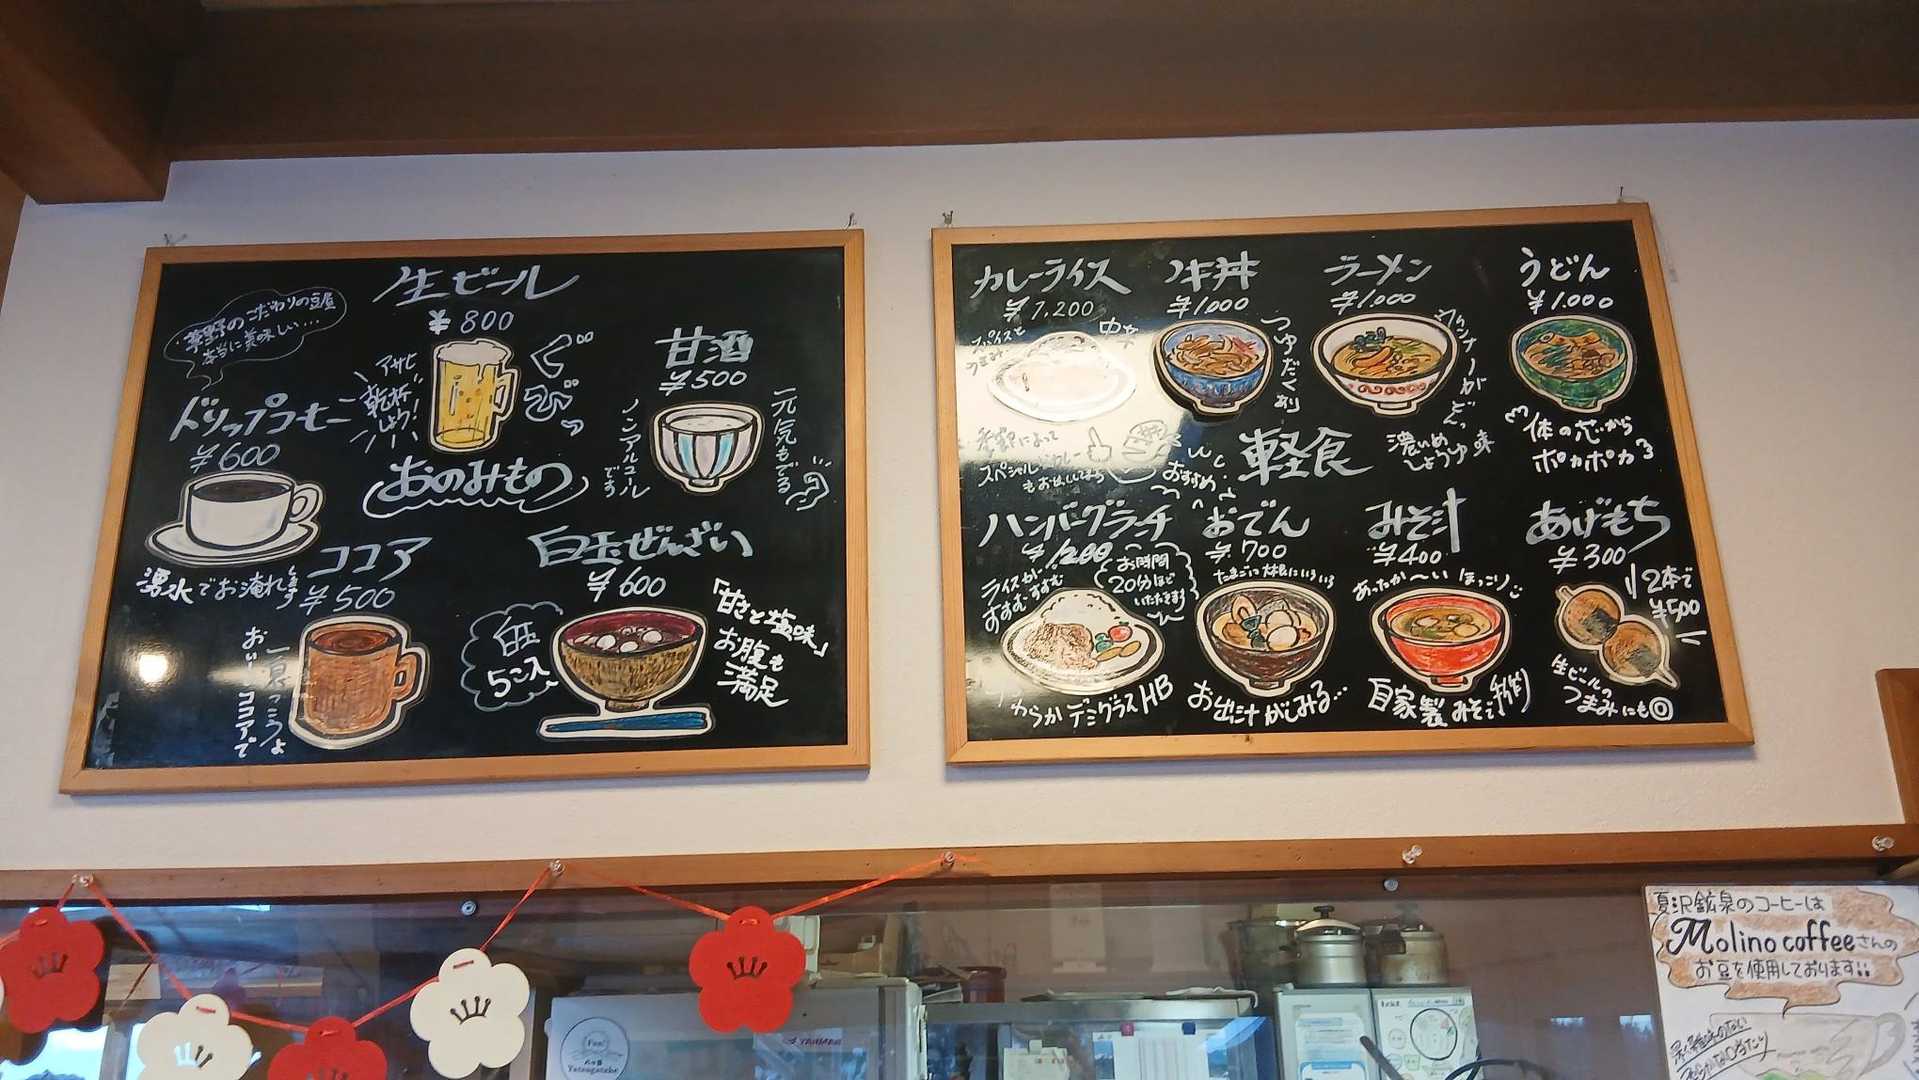 生ビール
¥800
茅野のこだわりの豆屋
本当に美味しい…
アサヒ
乾杯
しよう!
ぐび
甘酒
¥500
ノンアルコール
です
元気もでる
ドリップコーヒー
¥600
湧水でお淹れします
おのみもの
ココア
¥500
おいしいココアで
白玉ぜんざい
¥600
白玉
5こ入
「甘さと塩味」
お腹も
満足
カレーライス
¥1,200
スパイスと
うまみ
中辛
季節によって
スペシャルカレー
牛丼
¥1000
つゆだくあり
ラーメン
¥1,000
濃いめ
しょうゆ味
うどん
¥1,000
体の芯から
ポカポカ
軽食
おすすめ
ハンバーグランチ
¥1200
ライスが
すすむすすむ
お時間
20分ほど
いただきます
やわらかデミグラスHB
おでん
¥700
たまごに大根にいろいろ
お出汁がしみる…
みそ汁
¥400
あったか〜いほっこり
自家製みそで
あげもち
¥300
2本で
¥500
生ビールの
つまみにも◎
夏沢鉱泉のコーヒーは
Molino coffeeさんの
お豆を使用しております
Fun!
八ヶ岳
Yatsugatake
YANMAR